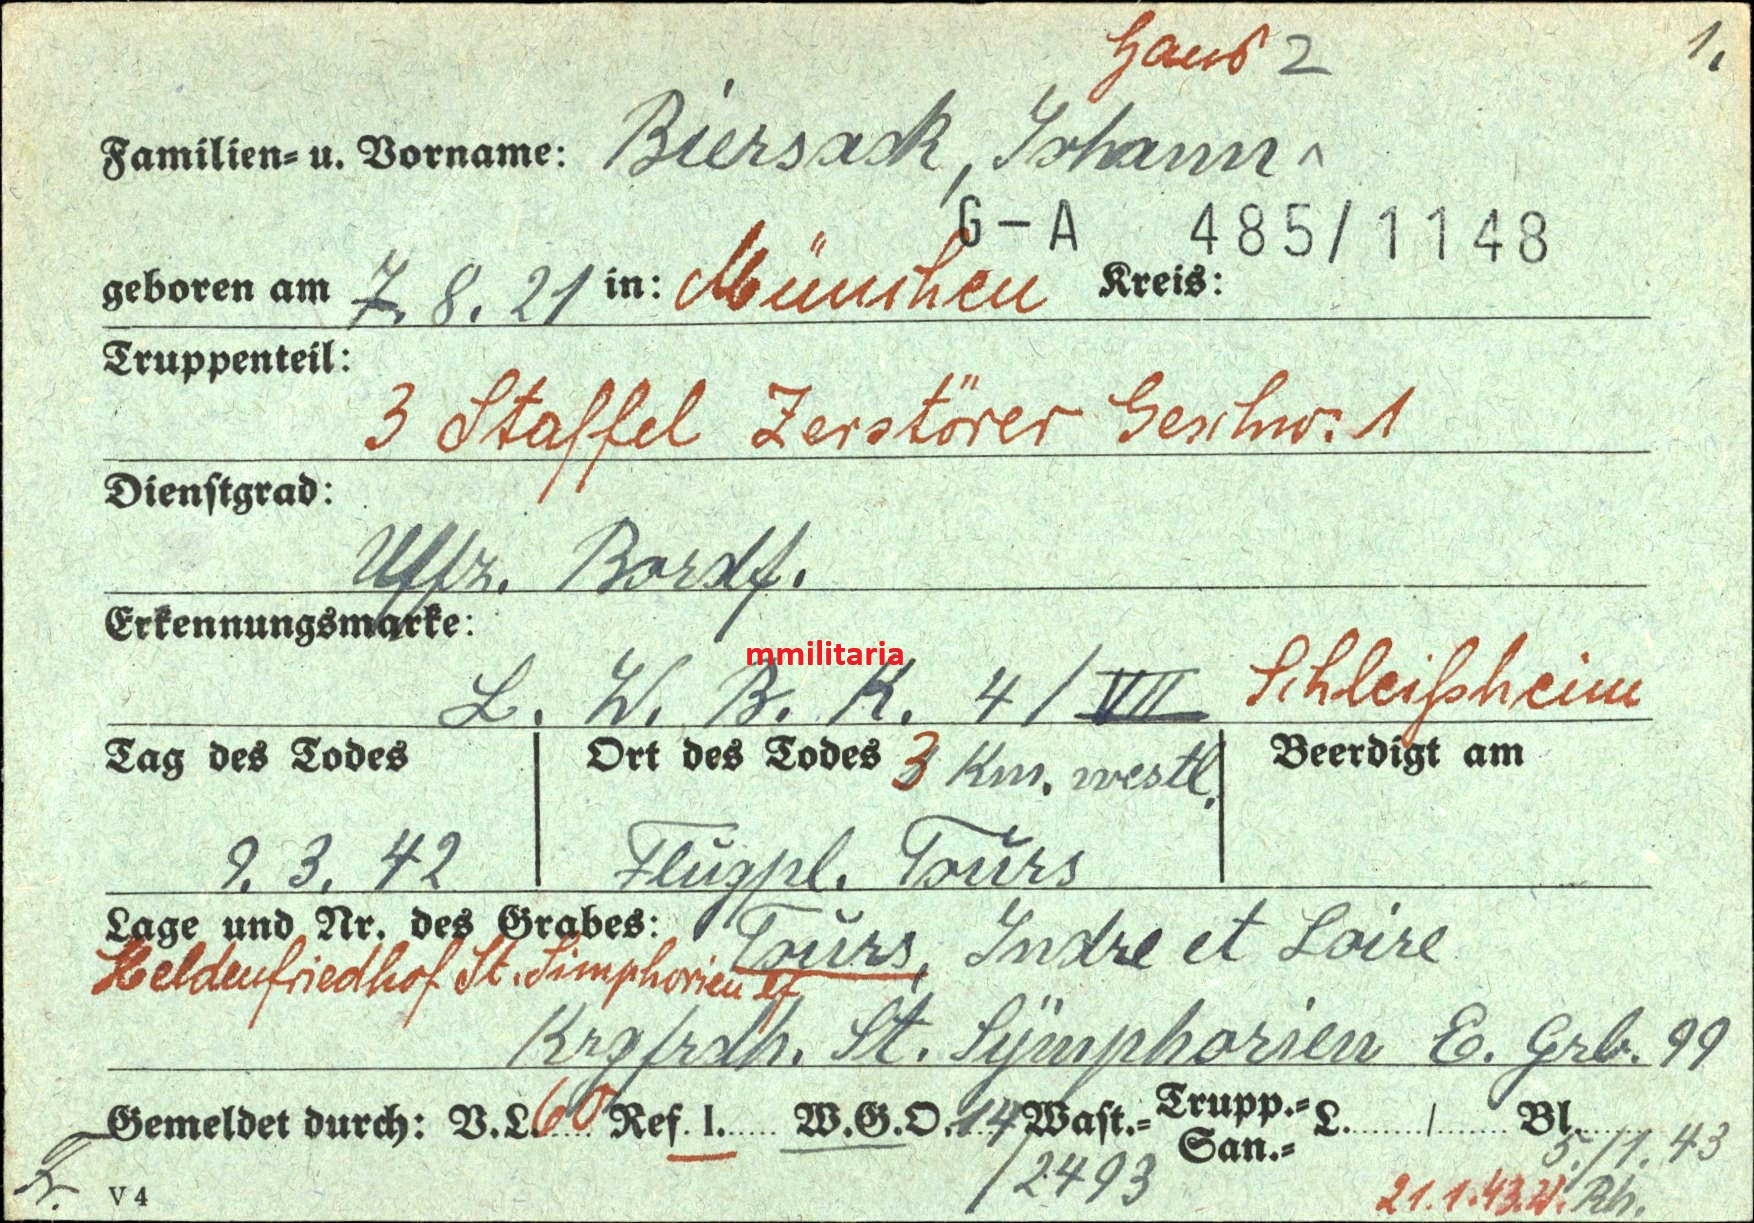 Hans 2 1,
Familien= u. Vorname: Biersack, Johann
G-A 485/1148
geboren am 7. 8. 21 in: München Kreis:
Truppenteil:
3 Staffel Zerstörer Geschw: 1
Dienstgrad:
Uffz. Bordf.
Erkennungsmarke:
mmilitaria
L. W. B. K. 4/VII Schleißheim
Tag des Todes Ort des Todes 3 Km. westl. Beerdigt am
9. 3. 42 Flugpl. Tours
Lage und Nr. des Grabes: Tours, Indre et Loire
Heldenfriedhof St. Simphorien
Krgfrdh. St. Symphorien E. Grb. 99
Gemeldet durch: V.L. 60 Ref. I. W.G.O. 14 Wast.= Trupp.= San.= L. / Bl.
/2493 5./1. 43
V 4 21.1.43. Rh.